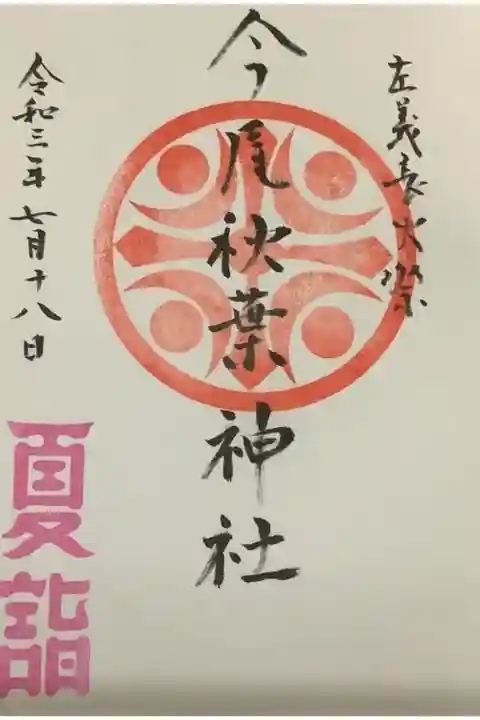 左義長火祭
今尾秋葉神社
令和三年七月十八日
夏詣